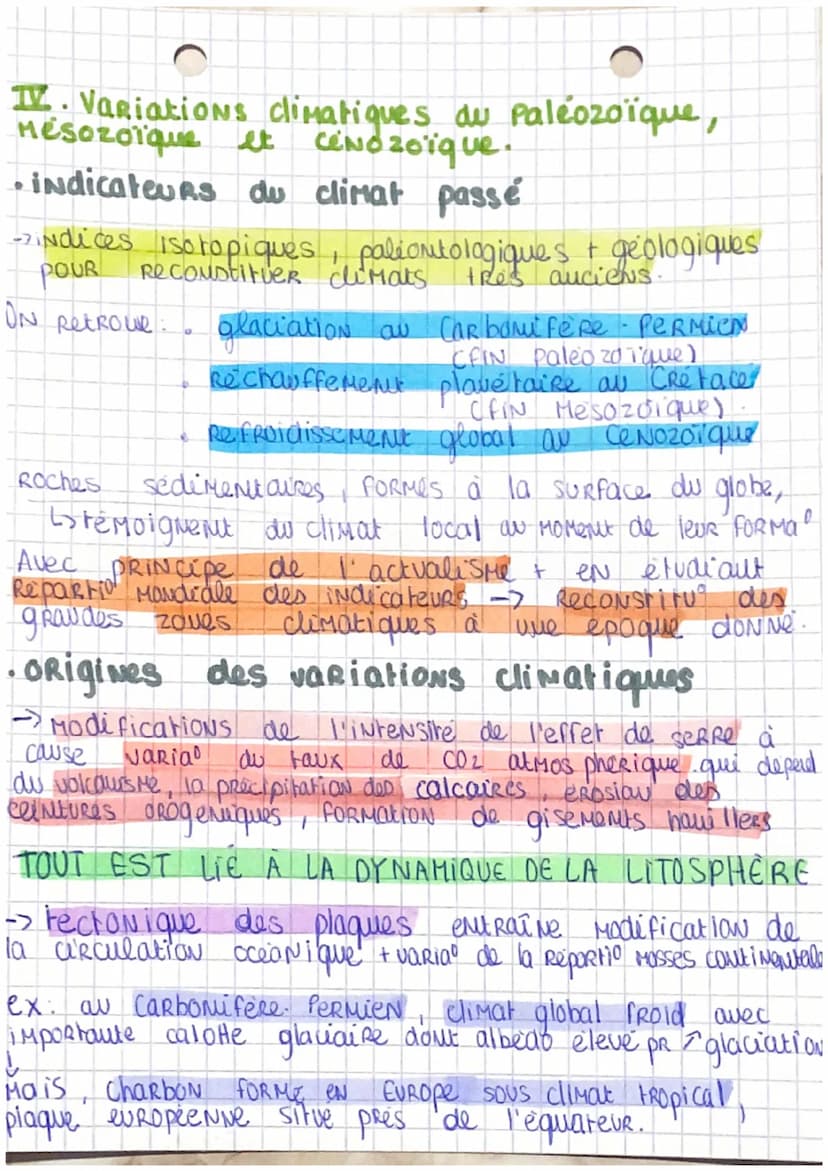 IV. Variations climatiques du Paléozoïque,
Mésozoïque et Cénozoïque.
• indicateurs du climat passé
-> indices isotopiques, paléontologiques + géologiques
pour reconstituer climats très anciens.
On retrouve : • glaciation au Carbonifère-Permien
(fin paléozoïque)
• Réchauffement planétaire au Crétacé
(fin Mésozoïque).
• Refroidissement global au Cénozoïque
Roches sédimentaires, formés à la surface du globe,
↳ témoignent du climat local au moment de leur formaº
Avec principe de l'actualisme + en étudiant
Répartiº Mondiale des indicateurs -> Reconstituº des
grandes zones climatiques à une époque donné.
• origines des variations climatiques
-> Modifications de l'intensité de l'effet de serre à
cause variaº du taux de CO2 atmosphérique qui depend
du volcanisme, la précipitation des calcaires, érosion des
ceintures orogéniques, formation de gisements houillers
TOUT EST LIÉ À LA DYNAMIQUE DE LA LITOSPHÈRE
-> tectonique des plaques entraîne modification de
la circulation océanique + variaº de la répartiº masses continentales
ex : au Carbonifère-Permien, climat global froid avec
importante calotte glaciaire dont albédo élevé pr ↗ glaciation
↓
Mais, Charbon formé en Europe sous climat tropical,
plaque européenne situé près de l'équateur.